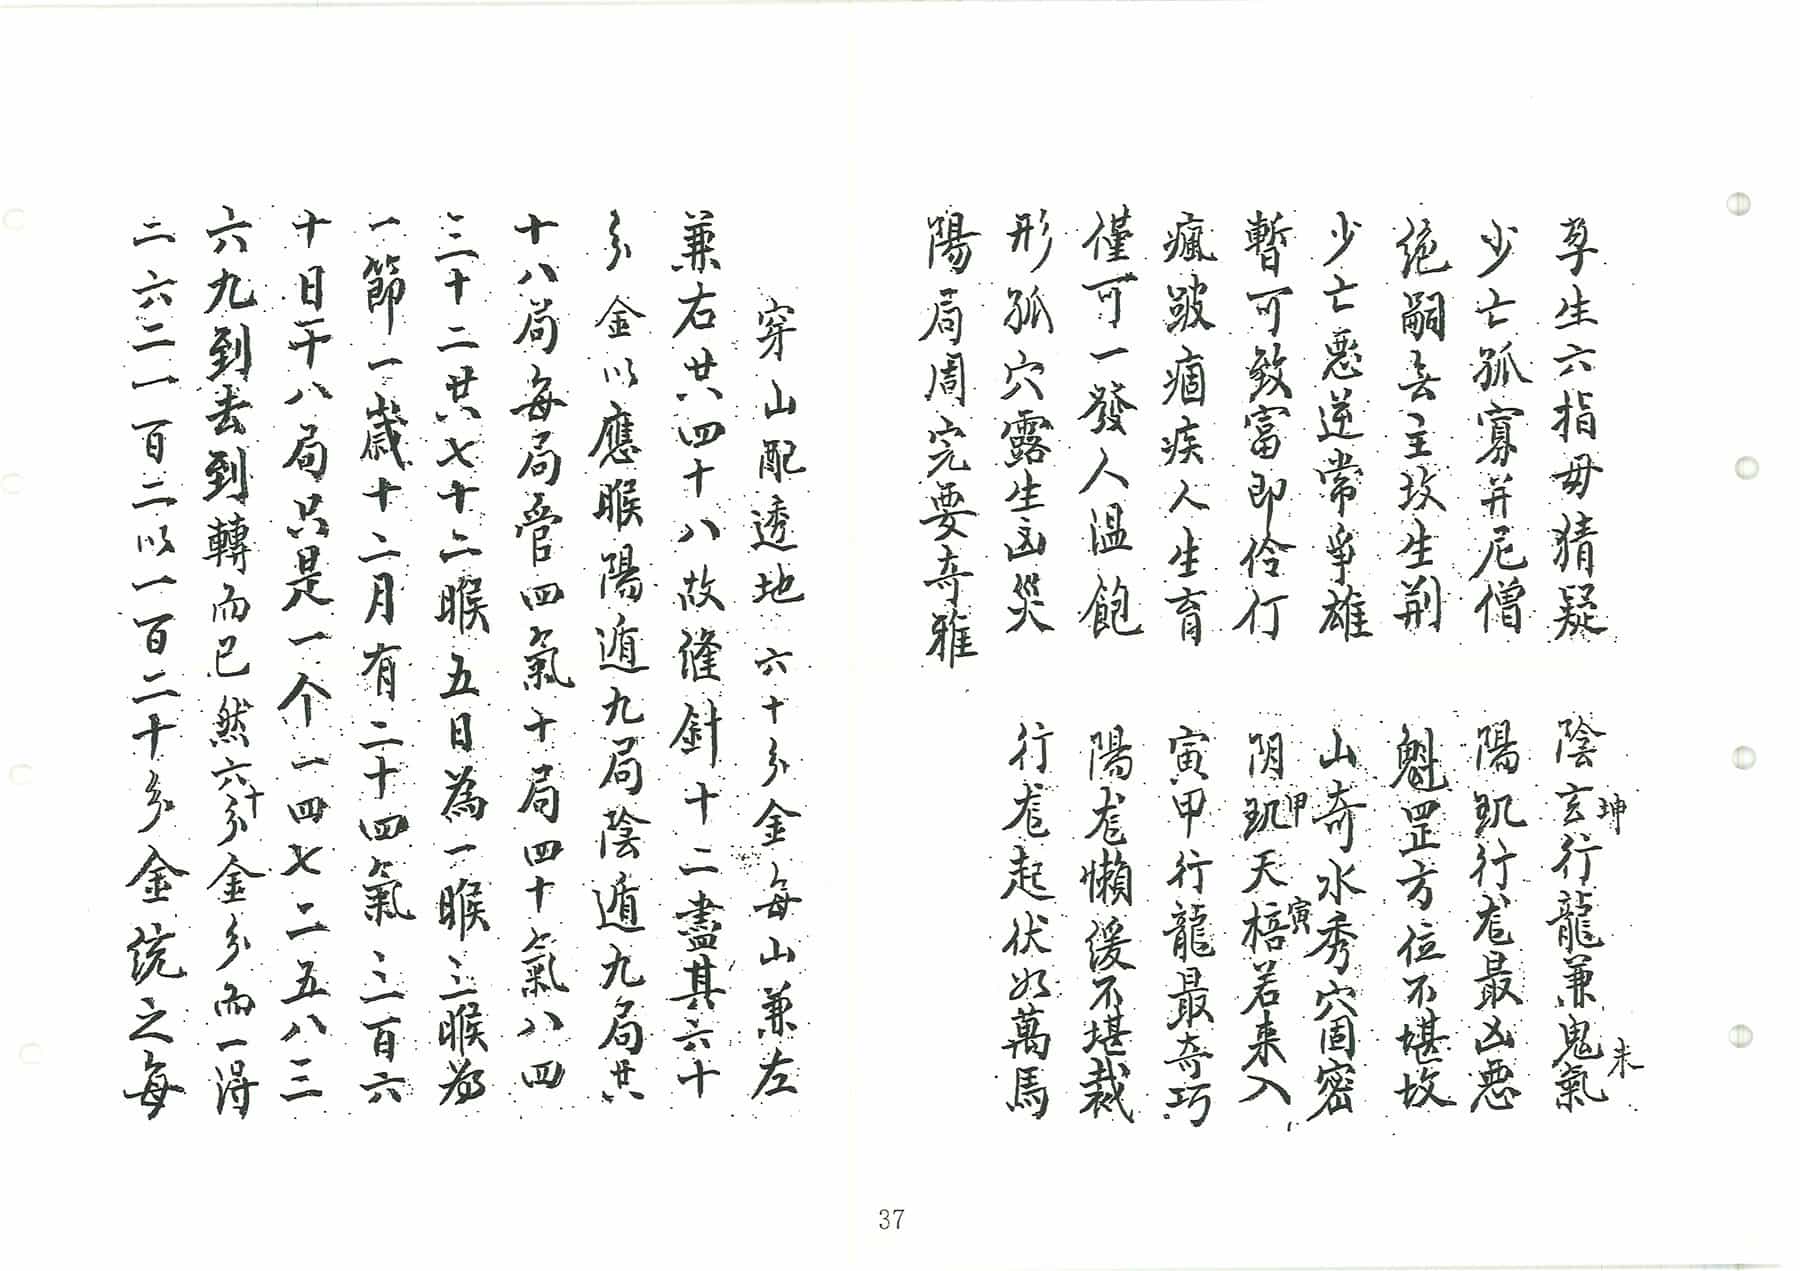 孕生六指毋猜疑　陰玄行龍兼鬼氣
坤
未
少亡孤寡并尼僧　陽玑行龙最凶惡
絶嗣去主坟生荆　魁罡方位不堪坟
少亡惡逆常爭雄　山奇水秀穴固密
暫可致富即伶仃　阴玑天棓若来入
甲
寅
瘋跛痼疾人生育　寅甲行龍最奇巧
僅可一發人溫飽　陽龙懶緩不堪裁
形孤穴露生凶災　行龙起伏如萬馬
陽局周完要奇雅
穿山配透地六十分金每山兼左
兼右廿六四十八故縫針十二盡其六十
分金以應㬋陽遁九局陰遁九局共
十八局每局管四氣十局四十氣八四
三十二共七十二㬋五日為一㬋三㬋為
一節一歲十二月有二十四氣三百六
十日干八局只是一个一四七二五八三
六九到去到轉而已然六十分金分而一得
二六二一百二以一百二十分金統之每
37